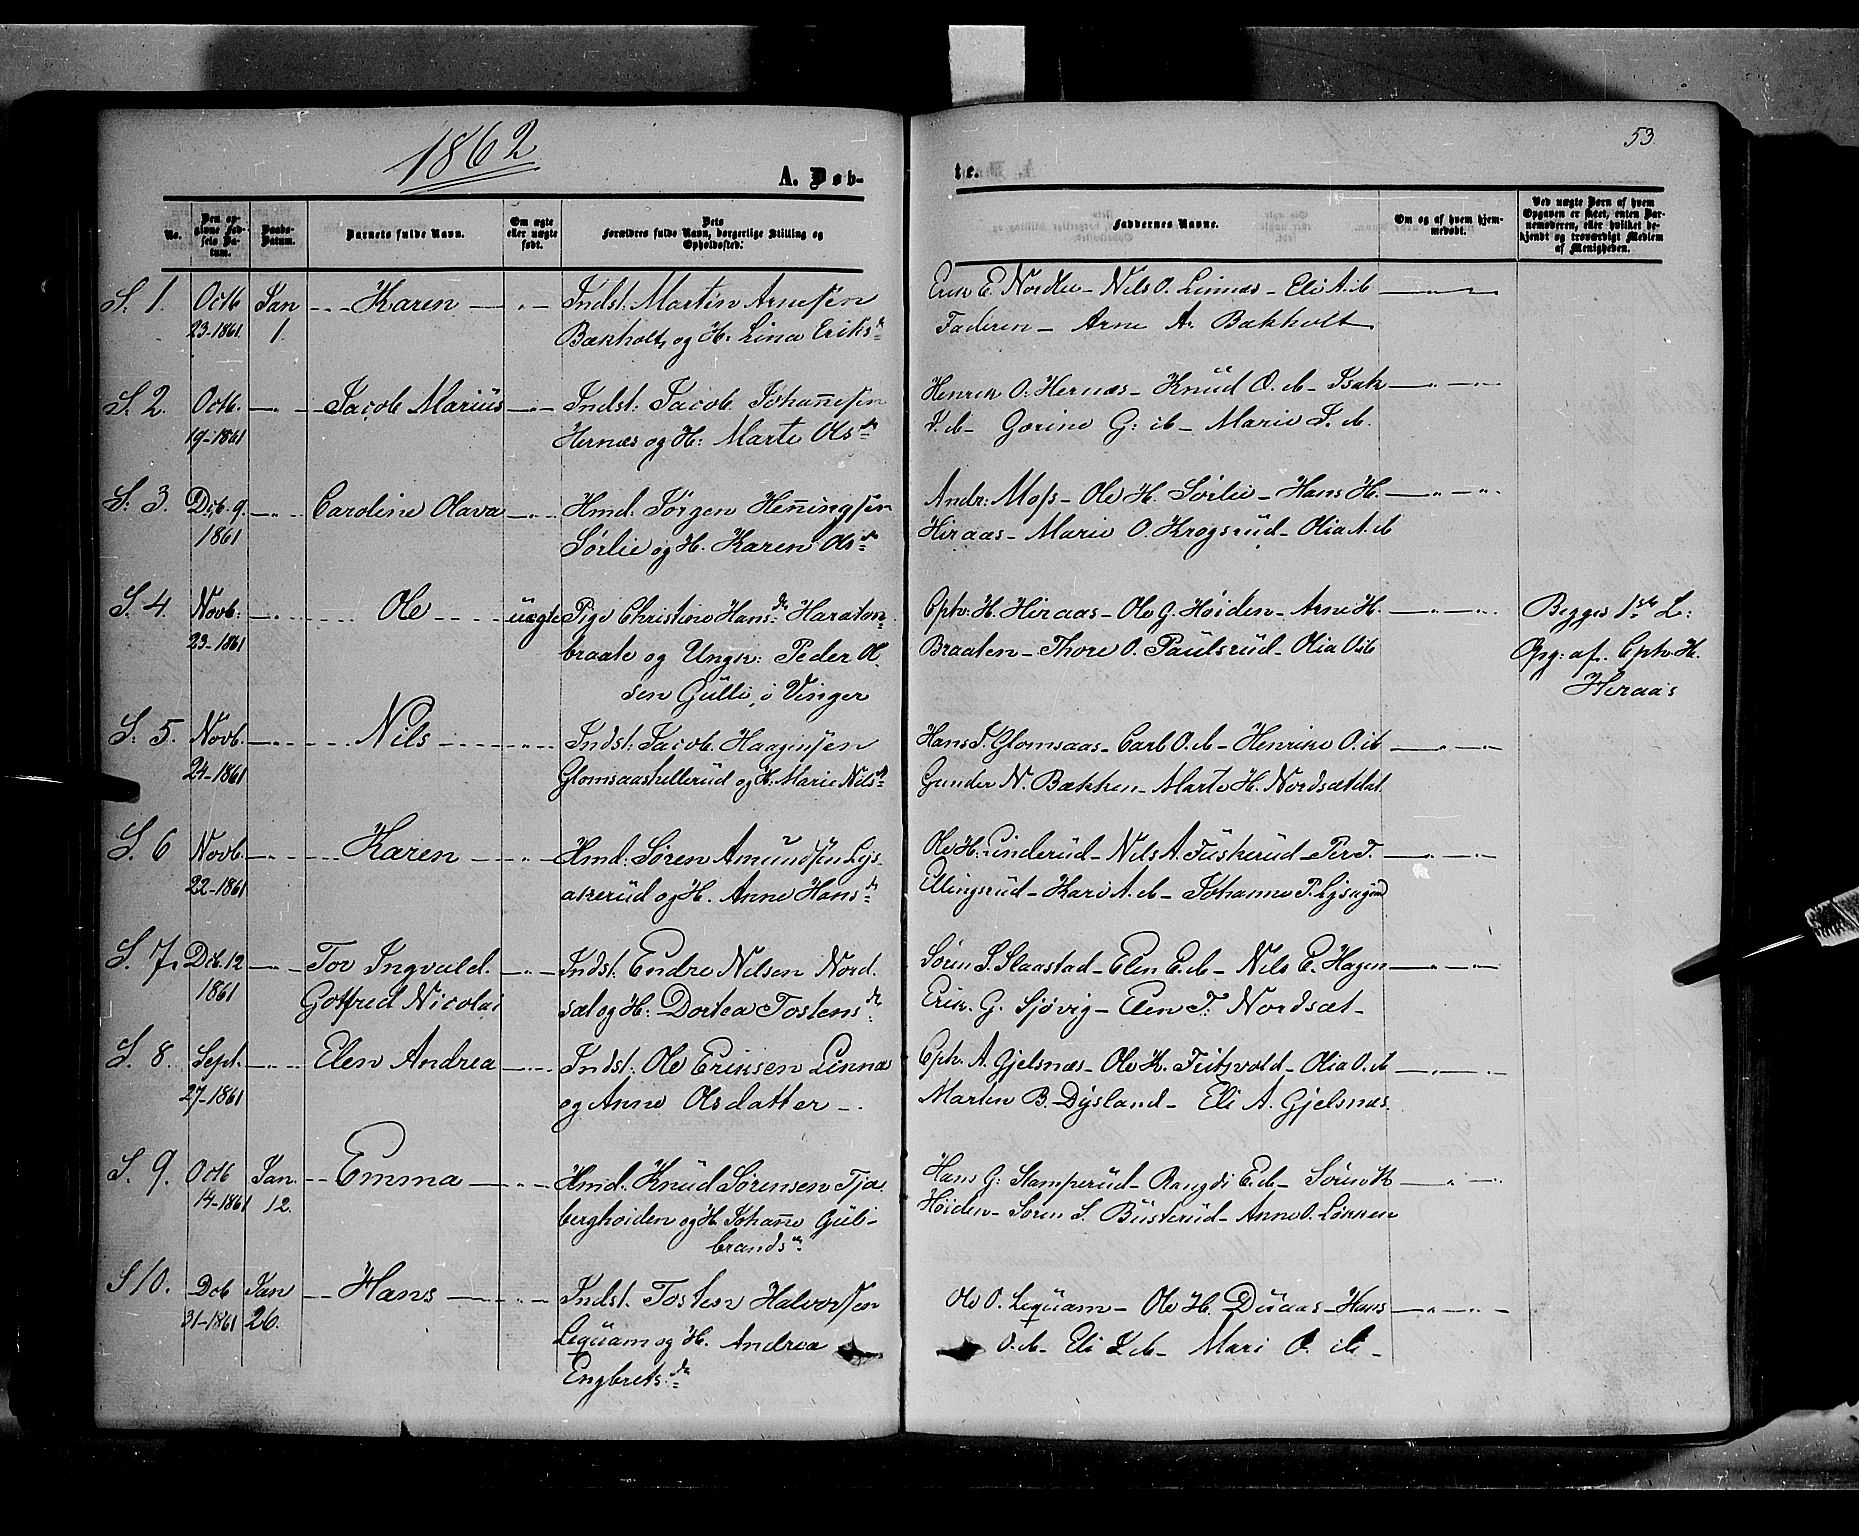 1862
53.
A. Døb-
te.
No.
Den op-
givne Fød-
sels Da-
tum.
Daabs-
Datum.
Barnets fulde Navn.
Om ægte
eller uægte
født.
Dets
Forældres fulde Navn, borgerlige Stilling og
Opholdssted.
Faddernes Navne.
Om og af hvem hjem-
medøbt.
Ved uægte Børn af hvem
Opgaven er skeet, enten Bar-
nemoderen, eller hvilket be-
kjendt og troværdigt Medlem
af Menigheden.
S. 1. Octb Jan - - - Karen - - " - Indst. Martin Arnesen
23-1861. 1. Bækholt, og H. Lina Eriksdr
Erik E. Nordlie - Nils O. Linnæs - Eli A. ib
Faderen - Arne A. Bækholt
S. 2. Octb. - " - Jacob Marius - " - Indst: Jacob Johannesen
19-1861 Hernæs og H: Marte Olsdr
Henrik O. Hernæs - Knud O. ib - Isak
J. ib - Gorine G: ib - Marie J. ib.
S. 3. Dcb. 9. - " - Caroline Olava - " - Hmd: Jørgen Henningsen
1861 Sørlie og H. Karen Olsdr
Andr: Moss - Ole H. Sørlie - Hans H.
Hiraas - Marie O. Krogsrud - Olia A. ib
S. 4. Novb: - " - Ole - - - - uægte Pige Christine Hansdr Haraton
23-1861 braate og Ungk: Peder Ol
sen Gulli, i Vinger
Ephr. H. Hiraas - Ole G: Høiden - Arne H.
Braaten - Thore O. Paulsrud - Olia O. ib
Begges 1ste L:
Opg: af. Ephr. H.
Hiraas
S. 5. Novb. - " - Nils - - - - Indst: Jacob Haagensen
24-1861 Glomsaashellerud og H. Marie Nilsdr
Hans J. Glomsaas - Carl O. ib - Henrike O. ib
Gunder N. Bækken - Marte H. Nordsætdal
S. 6 Novb. - " - Karen - - " - Hmd: Søren Amundsen Lys
22-1861 akerud og H. Anne Hansdr
Ole H. Linderud - Nils A. Fuskerud - Per T.
Ellingsrud - Kari A. ib - Johanne P. Lysagerd
S. 7. Dcb. 12 - " - Tov Ingvald. - " - Indst. Endre Nilsen Nord.
1861 Gotfred Nicolai sæt og H: Dortea Tostensdr
Søren S. Slaastad - Elen E. ib - Nils E. Hagen
Erik. G. Sjøvig - Elen T. Nordsæt -
S. 8. Sept. - " - Elen Andrea - " - Indst: Ole Eriksen Linnæ
27-1861 og Anne Olsdatter - .
Ephr. A. Gjelsnæs - Ole K. Fritzvold - Olia O. ib
Marten B. Dysland - Eli A. Gjelsnæs.
S. 9. Octb Jan. - - Emma - - " - Hmd. Knud Sørensen Tja
14-1861 12. berghøiden og H Johanne Gul-
brandsdr
Hans G: Stamperud - Rangdi E. ib - Søren K
Høiden - Søren S. Busterud - Anne O. Løkken
S 10. Dcb Jan - - Hans - - " - Indst. Tosten Halvorsen
31-1861 26. Lequam og H. Andrea
Engbretsdr
Ole O. Lequam - Ole H. Duaas - Hans
O. ib - Eli K. ib - Mari O. ib -